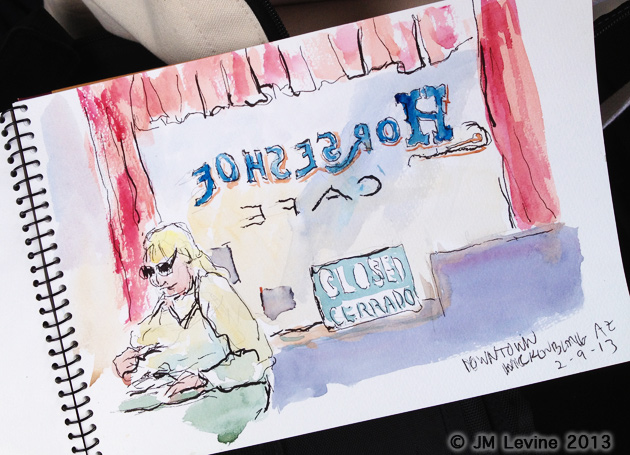 HORSESHOE
CAFE
CLOSED
CERRADO
DOWNTOWN
WICKENBURG AZ
2-9-13
© JM Levine 2013